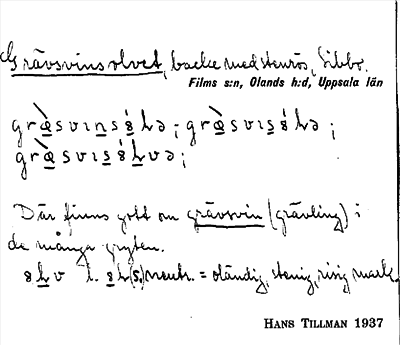 Grävsvinsolvet, backe med stenrös, Sibbo.
Films s:n, Olands h:d, Uppsala län
græ̀svɩns ; græ̀svɩs ;
græ̀svɩs ;
Där finns gott om grävsvin (grävling) i
de många gryten.
l. (s.) neutr. = oländig, stenig, risig mark.
HANS TILLMAN 1937